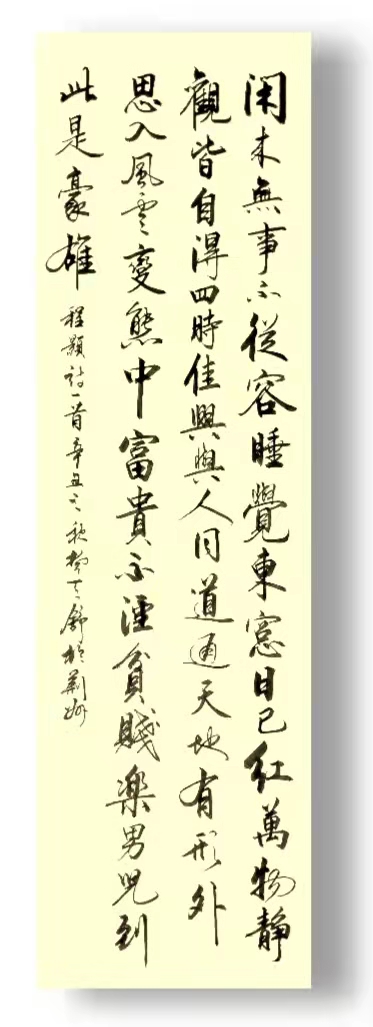 閑来無事不從容睡覺東窓日已紅萬物靜
觀皆自得四時佳興與人同道通天地有形外
思入風雲變態中富貴不淫貧賤楽男児到
此是豪雄
程顥詩一首辛丑之秋楚天舒於荊州